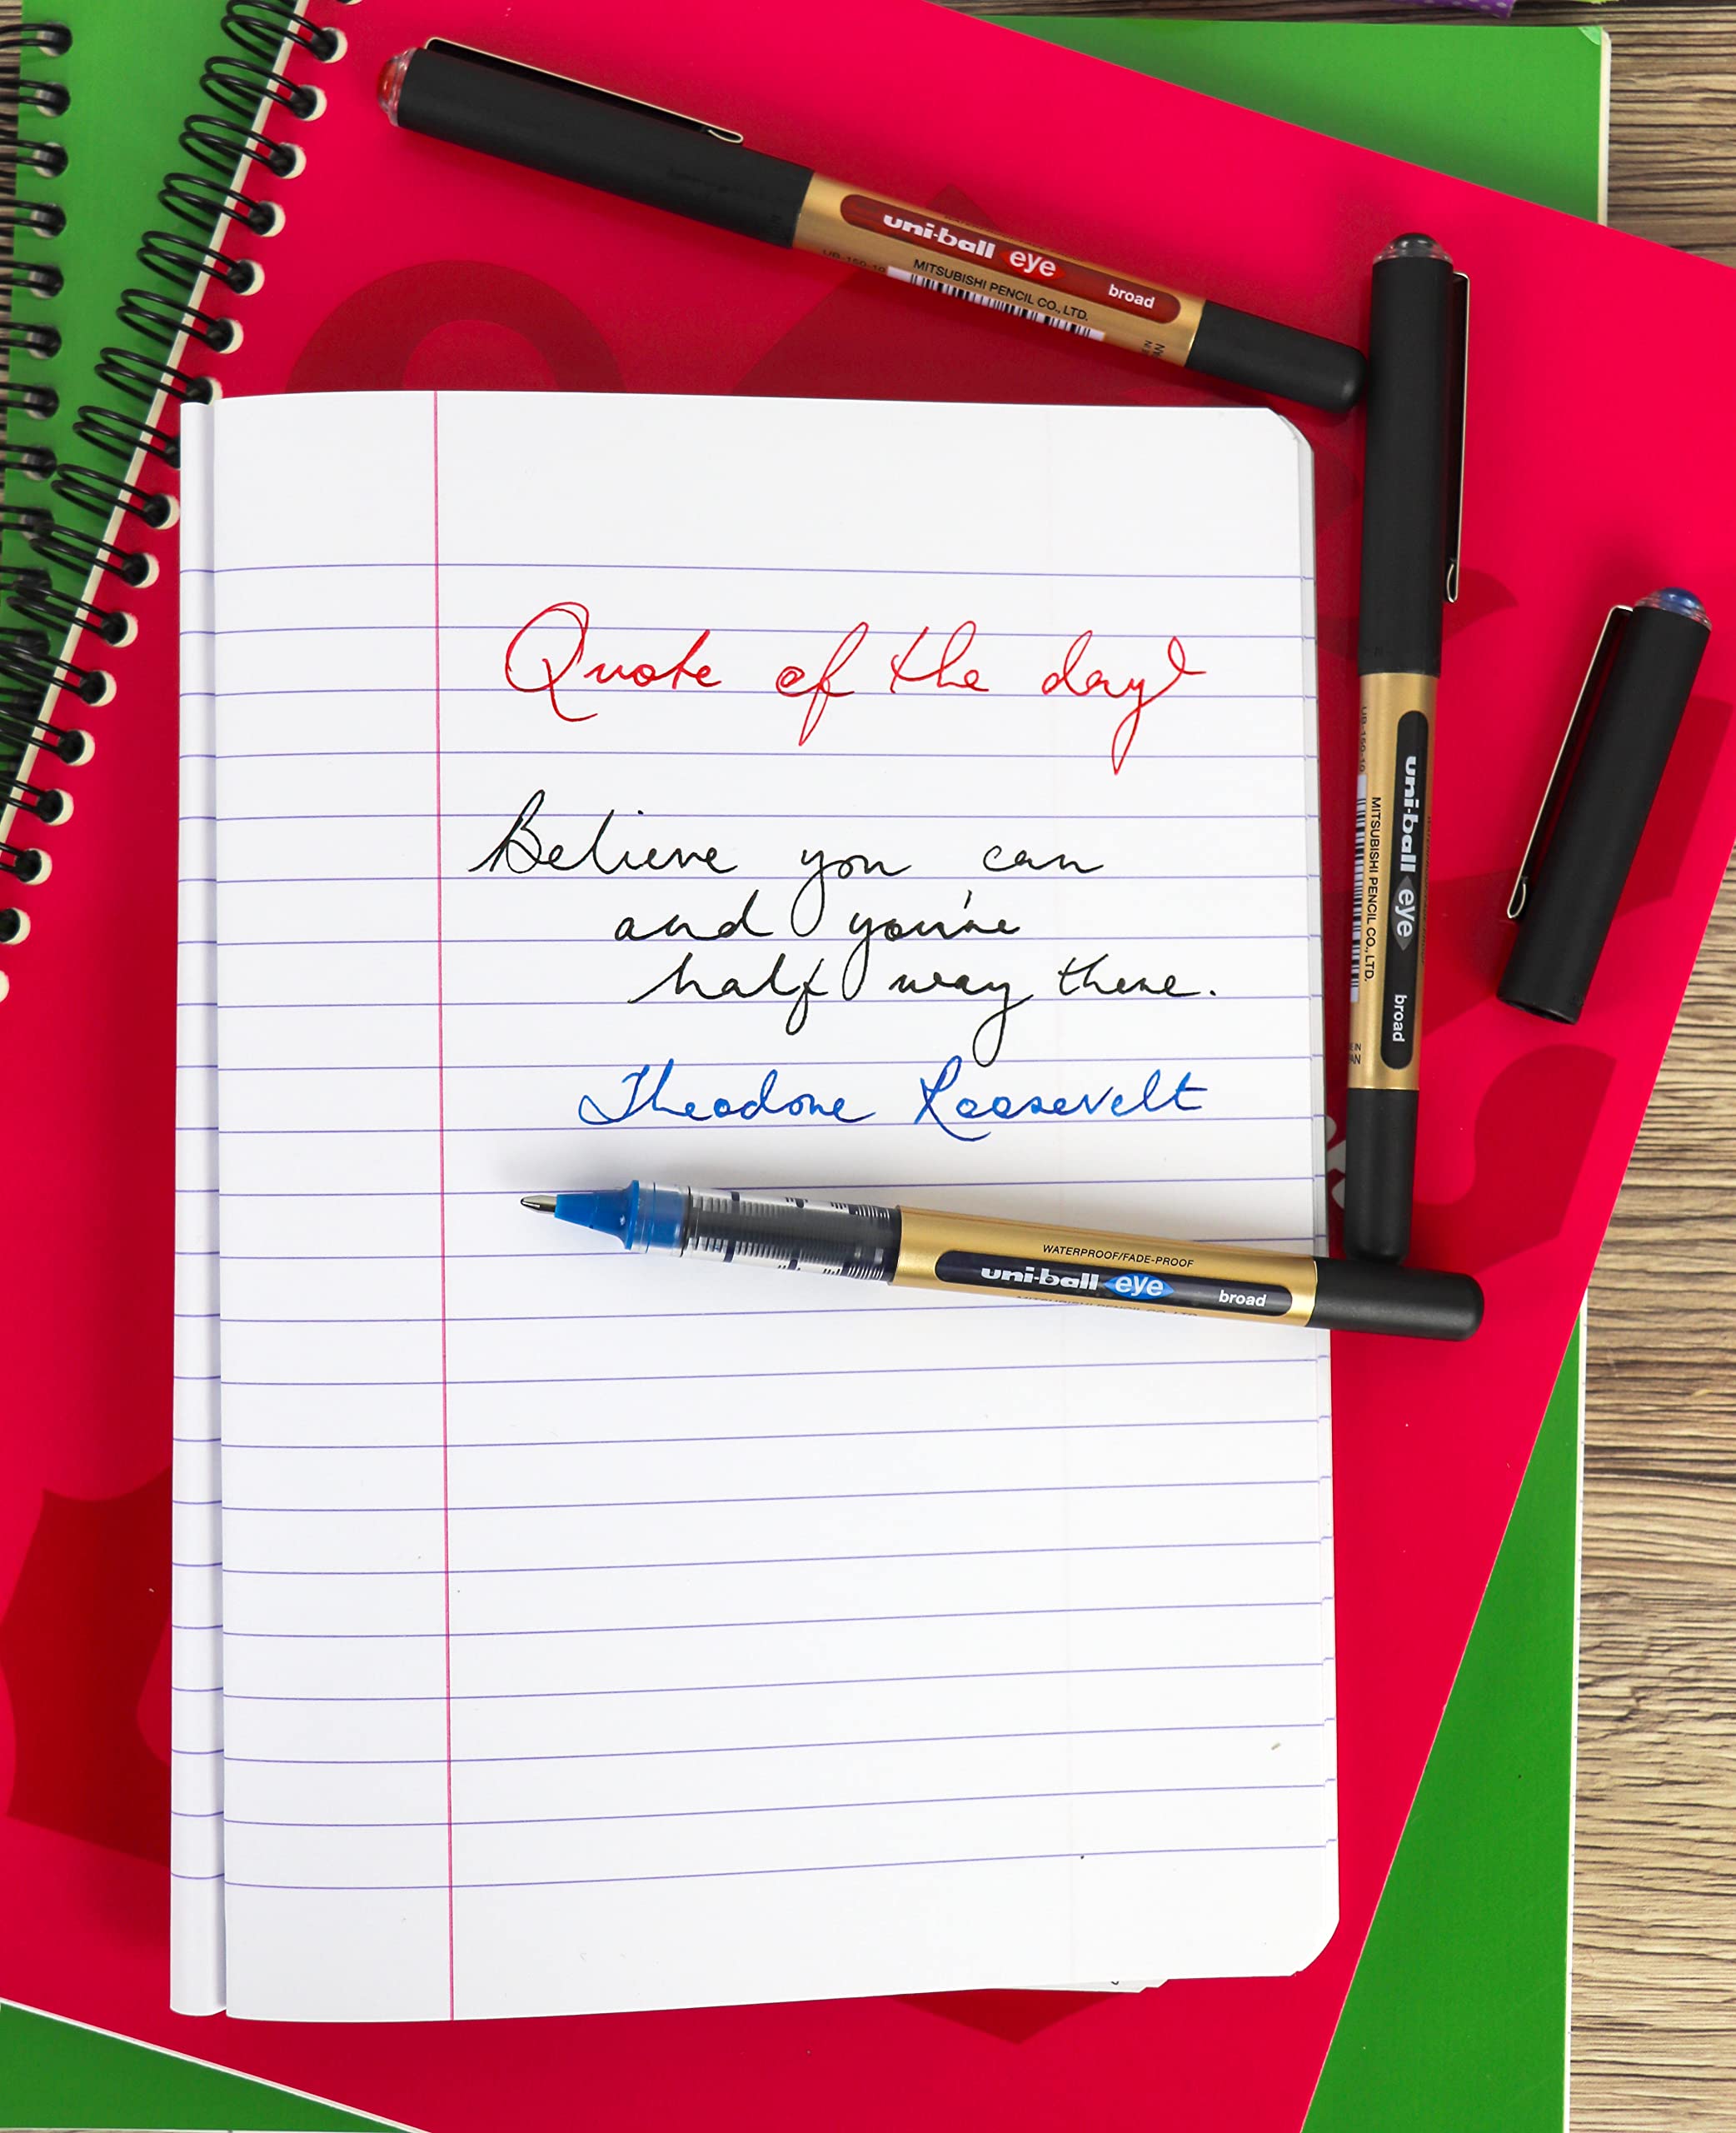 uni-ball eye broad
UB-150-10 MITSUBISHI PENCIL CO., LTD.
Quote of the day
Believe you can
and you're
half way there.
Theodore Roosevelt
uni-ball eye broad
UB-150-10 MITSUBISHI PENCIL CO., LTD.
WATERPROOF/FADE-PROOF
uni-ball eye broad
MITSUBISHI PENCIL CO., LTD.